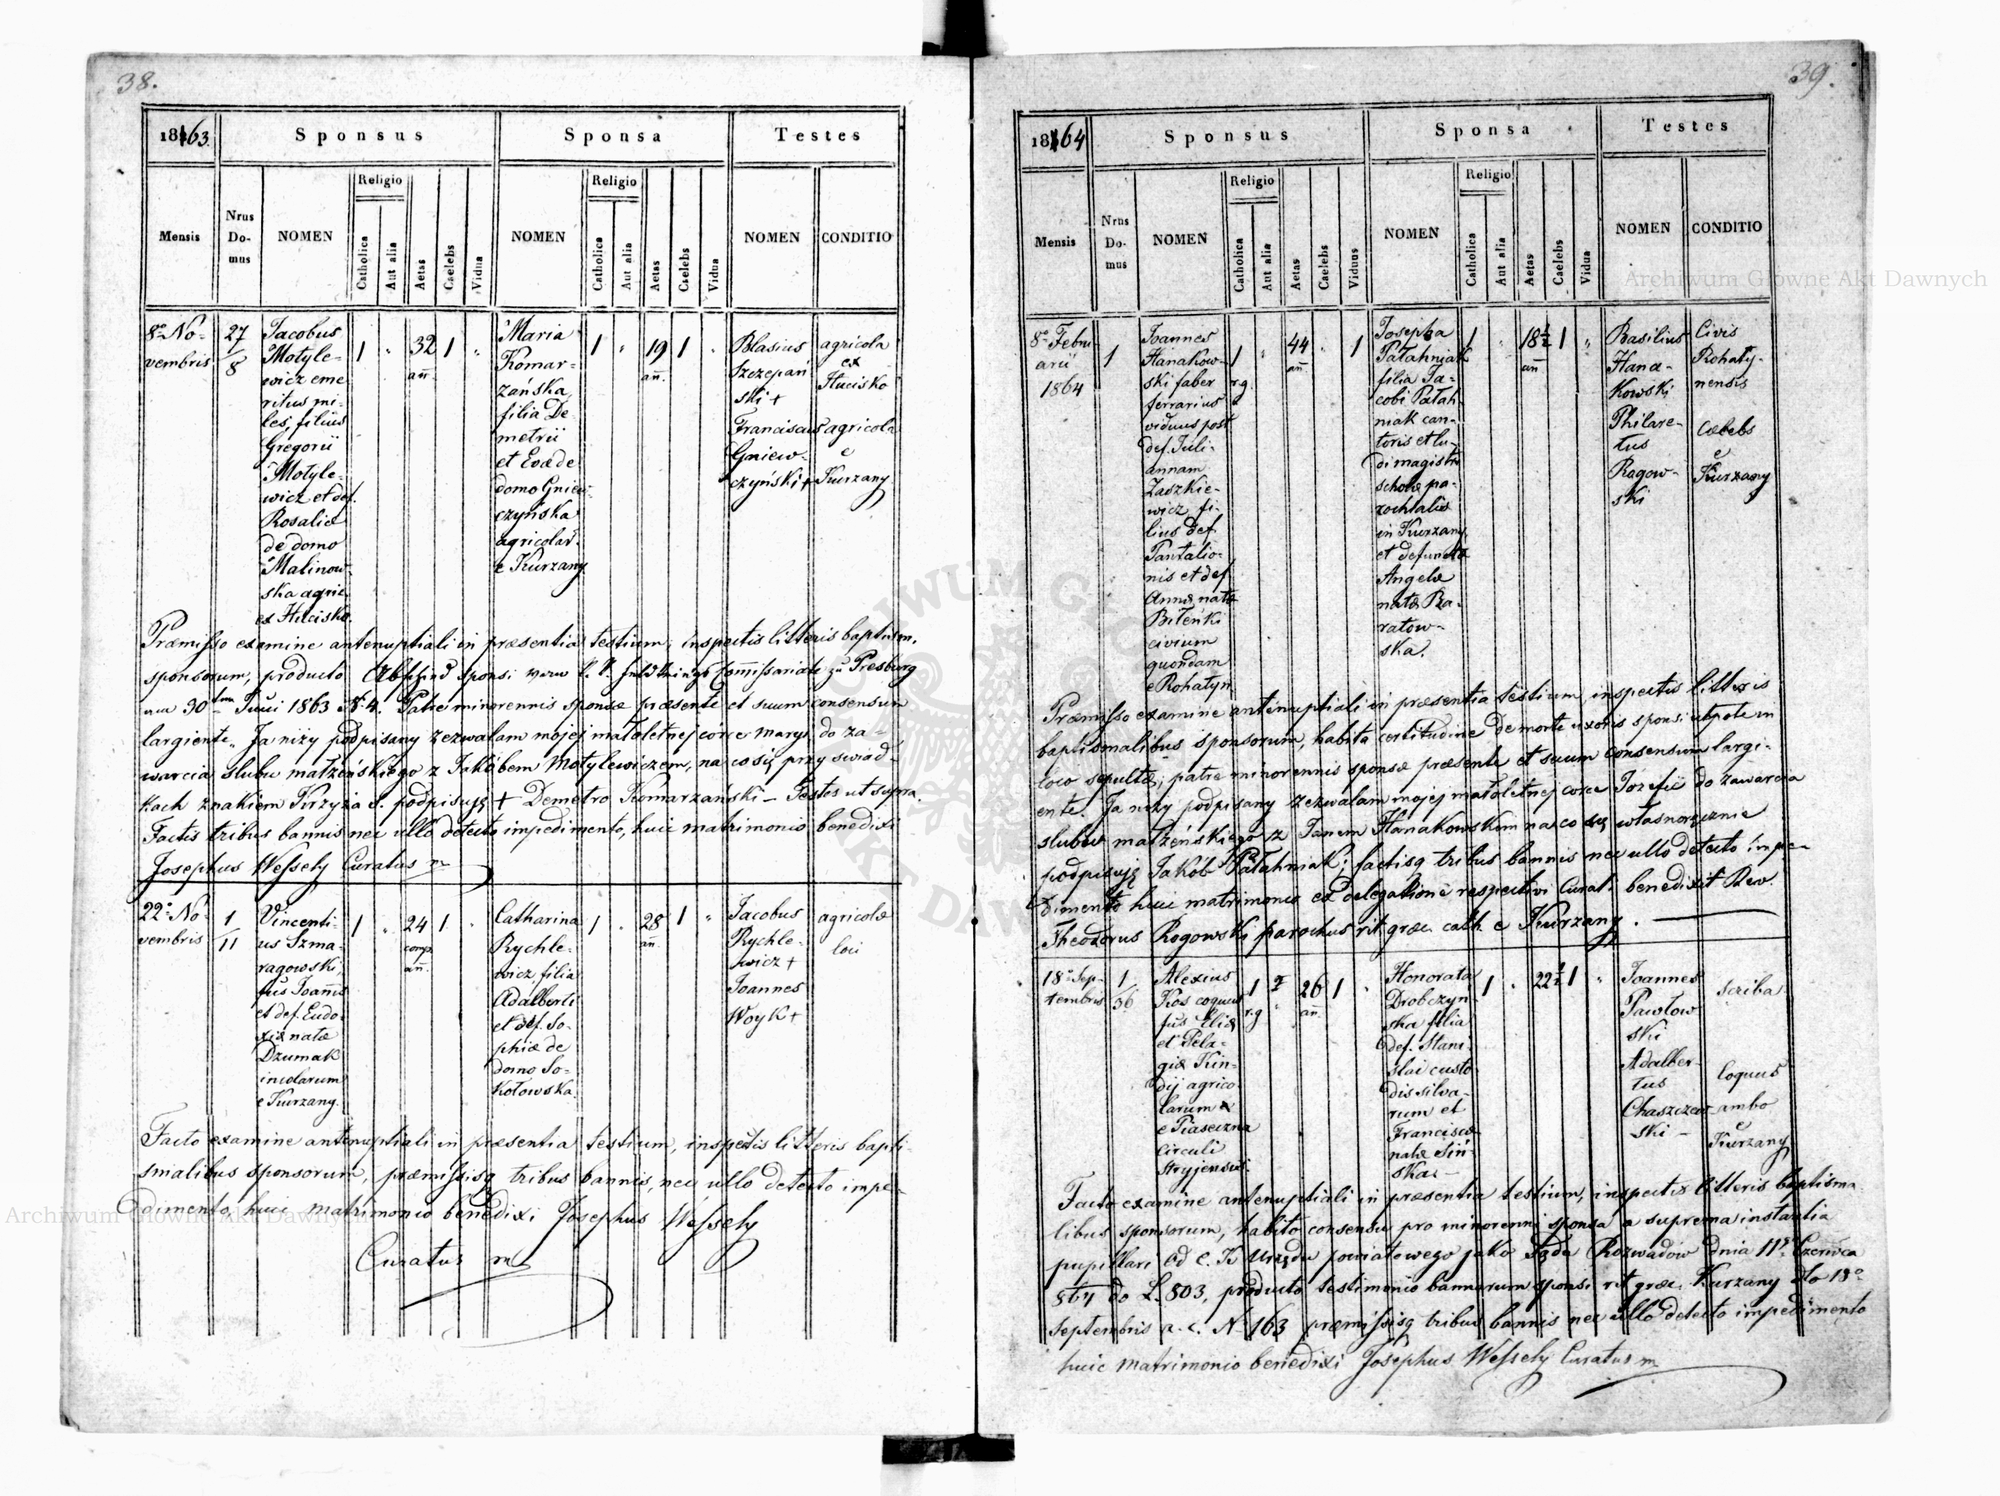 38.
1863.
Sponsus
Sponsa
Testes
Mensis
Nrus Do-mus
NOMEN
Religio
Catholica
Aut alia
Aetas
Caelebs
Vidua
NOMEN
Religio
Catholica
Aut alia
Aetas
Caelebs
Vidua
NOMEN
CONDITIO
8º No-
vembris
27
8
Jacobus
Motyle-
wicz eme
ritus mi-
les, filius
Gregorii
Motyle-
wicz et def.
Rosaliæ
de domo
Malinow-
ska agric.
ex Hucisko.
1
"
32
añ.
1
"
Maria
Komar-
zańska
filia De-
metrii
et Evæ de
domo Gniew-
czyńska
agricolar.
e Kurzany
1
"
19
añ.
1
"
Blasius
Szczepań
ski +
Franciscus
Gniew-
czyński +
agricola
ex
Hucisko
agricola
e
Kurzany
Præmisso examine antenuptiali in præsentia testium, inspectis litteris baptism.
sponsorum, producto Abschied sponsi vom k. k. Feldkriegs Commissariate zu Presburg
30 Juni 1863 N 4. Patre minorennis sponsæ præsente et suum consensum
largiente „Ja niży podpisany zezwalam mojej małoletnej córce Maryi do za-
warcia slubu małżeńskiego z Jakóbem Motylewiczem, na co się przy swiad-
kach znakiem Krzyża S. podpisuję + Demetro Komarzański – Testes ut supra.
Factis tribus bannis nec ullo detecto impedimento, huic matrimonio benedixi
Josephus Wessely Curatus m
22º No-
vembris
1
11
Vincenti-
us Szma-
ragowski,
fius Joañis
et def. Eudo-
xiæ natæ
Dzumak
incolarum
e Kurzany.
1
"
24
comp.
añ.
1
"
Catharina
Rychle-
wicz filia
Adalberti
et def. So-
phiæ de
domo So-
kołowska.
1
"
28
añ.
1
"
Jacobus
Rychle-
wicz +
Joannes
Woyk +
agricolæ
loci
Facto examine antenuptiali in præsentia testium, inspectis litteris bapti-
smalibus sponsorum, præmissisq tribus bannis, nec ullo detecto impe-
dimento, huic matrimonio benedixi Josephus Wessely
Curatus m
39.
1864
Sponsus
Sponsa
Testes
Mensis
Nrus Do-mus
NOMEN
Religio
Catholica
Aut alia
Aetas
Caelebs
Viduus
NOMEN
Religio
Catholica
Aut alia
Aetas
Caelebs
Vidua
NOMEN
CONDITIO
8º Febru
arii
1864
1
Joannes
Hanakow-
ski faber
ferrarius
viduus post
def. Juli-
annam
Zaszkie-
wicz fi-
lius def.
Pantalio-
nis et def.
Annæ natæ
Bileńki
civium
quondam
e Rohatyn
1
r. g.
"
44
añ
"
1
Josepha
Patahniak
filia Ja-
cobi Patah-
niak can-
toris et lu-
di magistri
scholæ pa-
rochialis
in Kurzany
et defunctæ
Angelæ
natæ Ba-
ratow-
ska.
1
"
18½
añ
1
"
Basilius
Hana-
kowski
Philare-
tus
Rogow-
ski
Civis
Rohaty-
nensis
Cælebs
e
Kurzany
Præmisso examine antenuptiali in præsentia testium, inspectis litteris
baptismalibus sponsorum, habita certitudine de morte uxoris sponsi utpote in
loco sepultæ; patre minorennis sponsæ præsente et suum consensum largi-
ente. Ja niży podpisany zezwalam mojej małoletnej córce Jozefii do zawarcia
slubu małżeńskiego z Janem Hanakowskim na co się własnoręcznie
podpisuję Jakób Patahniak; factisq tribus bannis nec ullo detecto impe-
dimento huic matrimonio ex delegatione respectivi Curati benedixit Rev.
Theodorus Rogowski parochus rit. græc. cath. e Kurzany.
18º Sep-
tembris
1
36
Alexius
Kos coquus
fius Eliæ
et Pela-
giæ Kin-
dij agrico
larum
e Piaseczna
Circuli
Stryjensis.
1
r. g
"
26
añ.
1
"
Honorata
Drobczyn
ska filia
def. Stani-
slai custo
dis silva-
rum et
Franciscæ
natæ Siń-
ska.
1
"
22½
1
"
Joannes
Pawłow
ski
Adalber-
tus
Chaszczew
ski –
scriba
Coquus
ambo
e
Kurzany
Facto examine antenuptiali in præsentia testium, inspectis litteris baptisma
libus sponsorum, habito consensu pro minorenni sponsa a suprema instantia
pupillari od C. K Urzędu powiatowego jako Sądu Rozwadów dnia 11º Czerwca
864 do L. 803, producto testimonio bannorum sponsi rit. græc. Kurzany dto 18º
Septembris a. c. N 163 præmissisq tribus bannis nec ullo detecto impedimento
huic matrimonio benedixi Josephus Wessely Curatus m
Archiwum Główne Akt Dawnych
Archiwum Główne Akt Dawnych